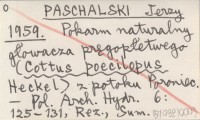 o PASCHALSKI Jerzy
1959. Pokarm naturalny
głowacza pręgopłetwego
(Cottus poecilopus
Heckel) z potoku Poroniec.
— Pol. Arch. Hydr. 6:
125-131, Rez., Sum.